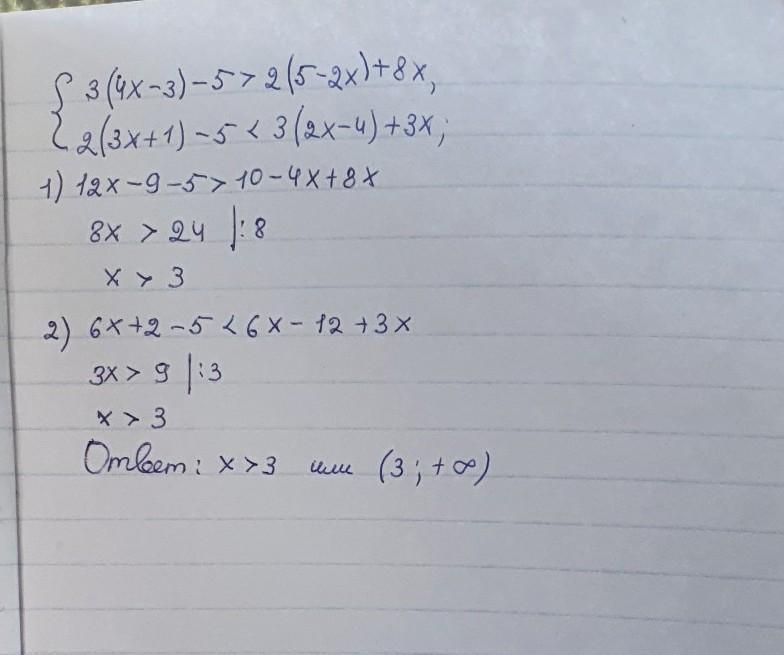 { 3(4x-3)-5 > 2(5-2x)+8x,
2(3x+1)-5 < 3(2x-4)+3x;
1) 12x-9-5 > 10-4x+8x
8x > 24 |:8
x > 3
2) 6x+2-5 < 6x-12+3x
3x > 9 |:3
x > 3
Ответ: x>3 или (3;+∞)